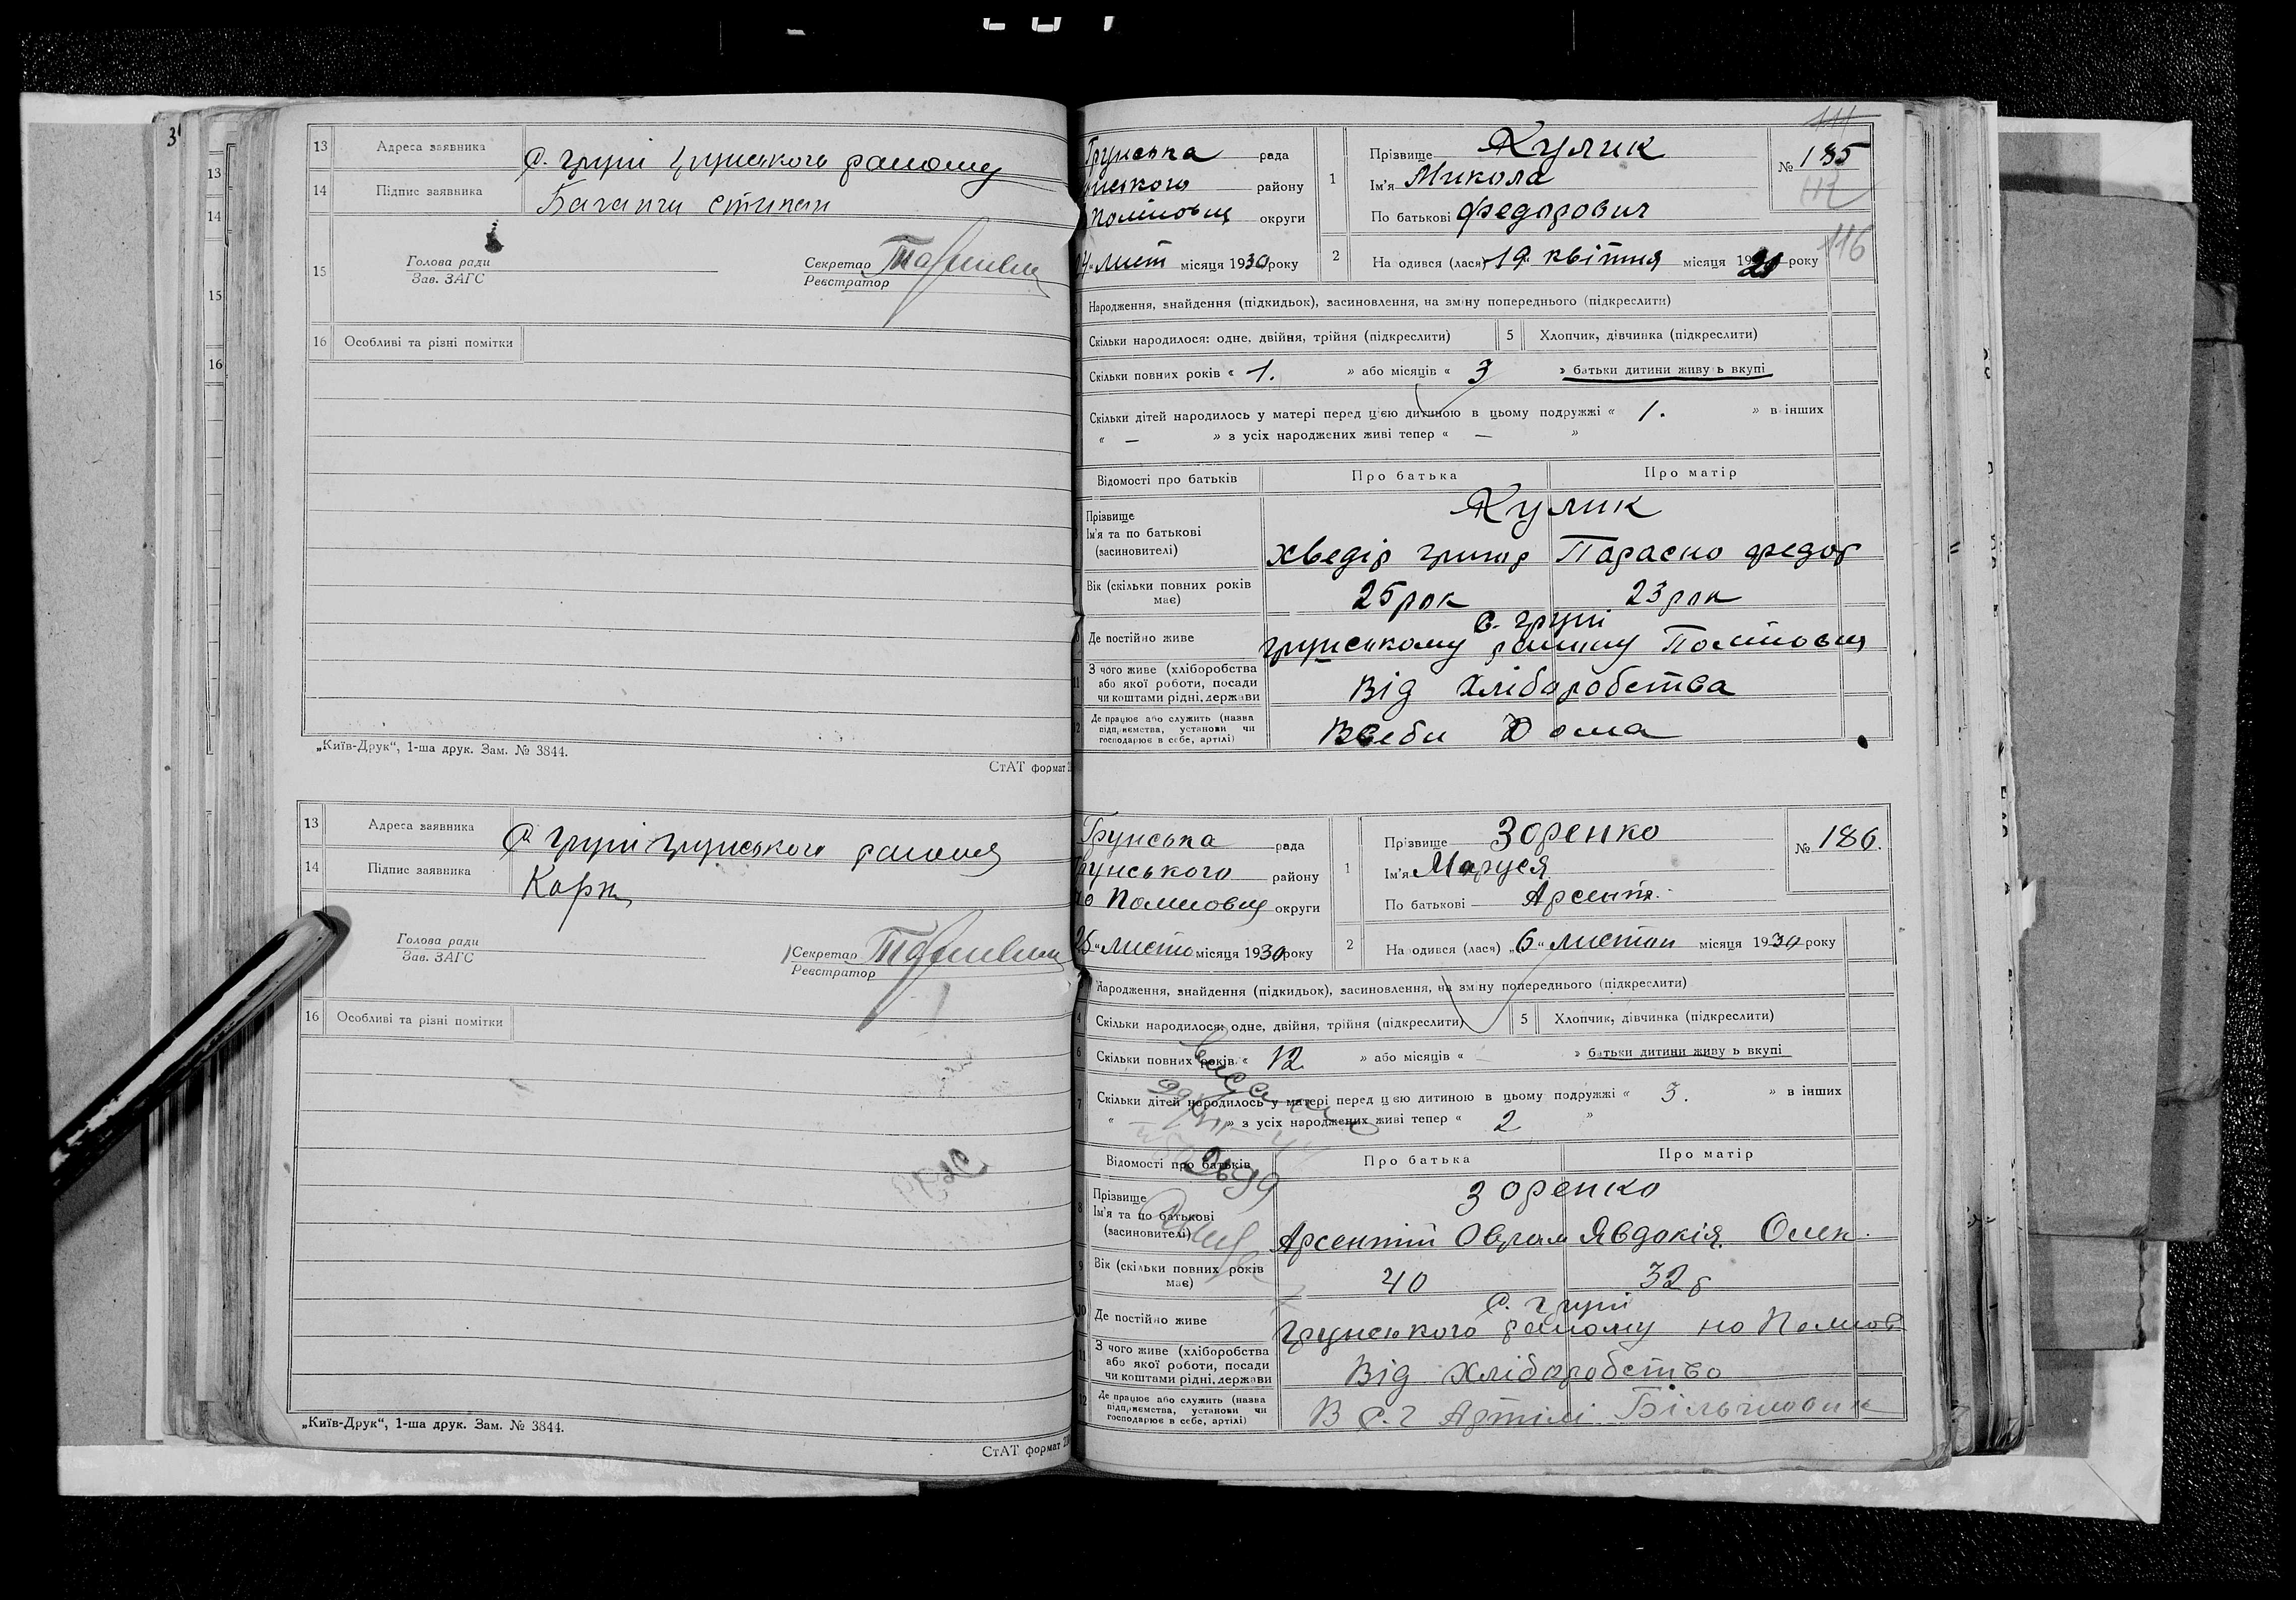 3
13
14
15
16
13 Адреса заявника с. Груні Грунського району
14 Підпис заявника
15 Голова ради
Зав. ЗАГС
Секретар
Реєстратор
16 Особливі та різні помітки
„Київ-Друк“, 1-ша друк. Зам. № 3844.
СтАТ формат
13 Адреса заявника с Груні Грунського
14 Підпис заявника
Голова ради
Зав. ЗАГС
Секретар
Реєстратор
16 Особливі та різні помітки
„Київ-Друк“, 1-ша друк. Зам. № 3844.
СтАТ формат
111
Грунська рада
району
округи
лист місяця 1930 року
1 Прізвище Кулик
Ім'я Микола
По батькові Федорович
№ 185
112
116
2 На одився (лася) 19 квітня місяця 19 року
Народження, знайдення (підкидьок), засиновлення, на зміну попереднього (підкреслити)
Скільки народилося: одне, двійня, трійня (підкреслити) 5 Хлопчик, дівчинка (підкреслити)
Скільки повних років « 1. » або місяців « 3 » батьки дитини живу ь вкупі
Скільки дітей народилось у матері перед цією дитиною в цьому подружжі « 1. » в інших
« — » з усіх народжених живі тепер « — »
Відомості про батьків Про батька Про матір
Прізвище Кулик
Ім'я та по батькові
(засиновителі) Хведір Григор Параска Федор
Вік (скільки повних років
має) 25 рок 23 рок
с. Груні
Де постійно живе Грунському
З чого живе (хліборобства
або якої роботи, посади
чи коштами рідні, держави Від Хліборобства
Де працює або служить (назва
підприємства, установи чи
господарює в себе, артілі) Всеби Дома
Грунська рада
Грунського району
округи
листо місяця 1930 року
1 Прізвище Зоренко
Ім'я Маруся
По батькові Арсентя.
№ 186.
2 На одився (лася) „6“ листоп місяця 1930 року
Народження, знайдення (підкидьок), засиновлення, на зміну попереднього (підкреслити)
4 Скільки народилося: одне, двійня, трійня (підкреслити) 5 Хлопчик, дівчинка (підкреслити)
6 Скільки повних років « 12 » або місяців « » батьки дитини живу ь вкупі
7 Скільки дітей народилось у матері перед цією дитиною в цьому подружжі « 3. » в інших
« » з усіх народжених живі тепер « 2 »
Відомості про батьків Про батька Про матір
8 Прізвище Зоренко
Ім'я та по батькові
(засиновителі) Арсентій Оврам Явдокія Олек.
9 Вік (скільки повних років
має) 40 32 р
с. Груні
10 Де постійно живе Грунського району
11 З чого живе (хліборобства
або якої роботи, посади
чи коштами рідні, держави Від Хліборобство
12 Де працює або служить (назва
підприємства, установи чи
господарює в себе, артілі) В с.г Артілі Більшовик